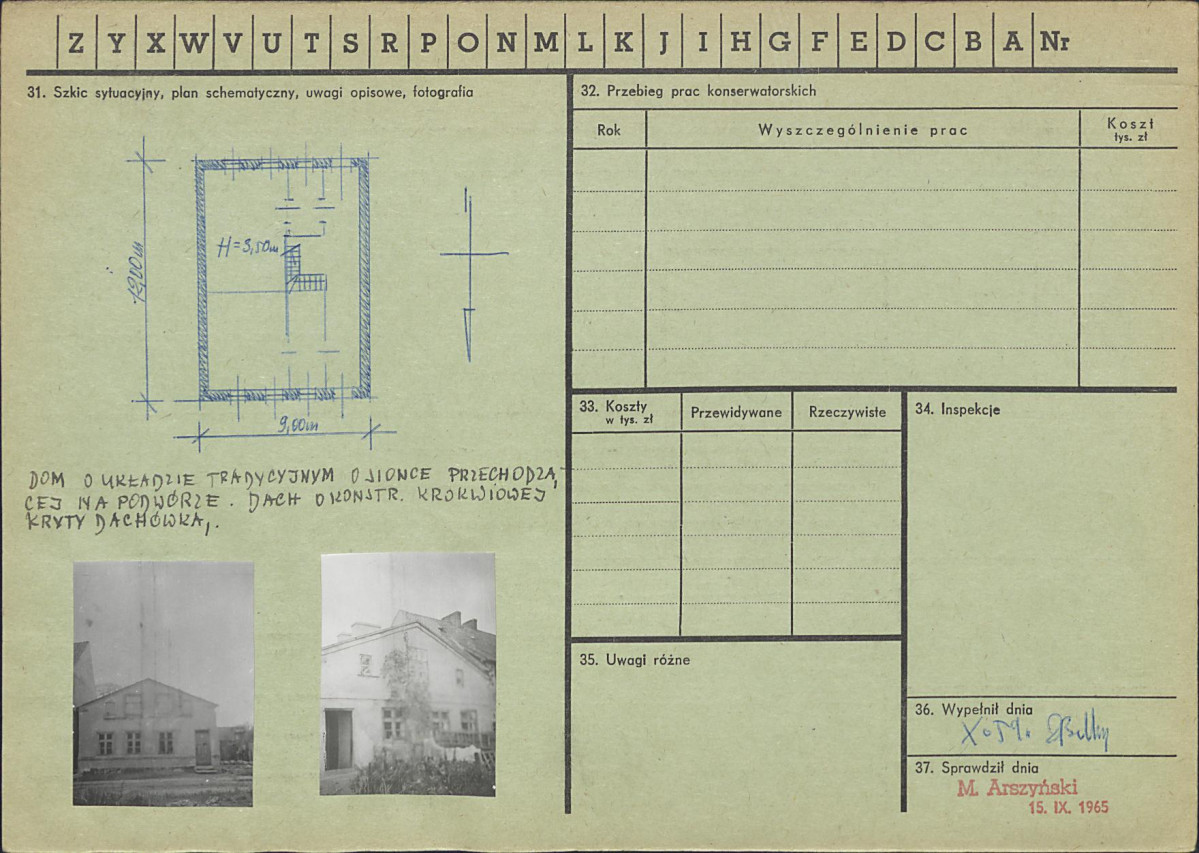 Z Y X W V U T S R P O N M L K J I H G F E D C B A Nr
31. Szkic sytuacyjny, plan schematyczny, uwagi opisowe, fotografia
H=3,50m
12,00m
9,00m
DOM O UKŁADZIE TRADYCYJNYM O SIONCE PRZECHODZĄ,
CEJ NA PODWÓRZE. DACH O KONSTR. KROKWIOWEJ
KRYTY DACHÓWKĄ.
32. Przebieg prac konserwatorskich
Rok
Wyszczególnienie prac
Koszt
tys. zł
33. Koszty
w tys. zł
Przewidywane
Rzeczywiste
34. Inspekcje
35. Uwagi różne
36. Wypełnił dnia
X.59.
37. Sprawdził dnia
M. Arszyński
15. IX. 1965